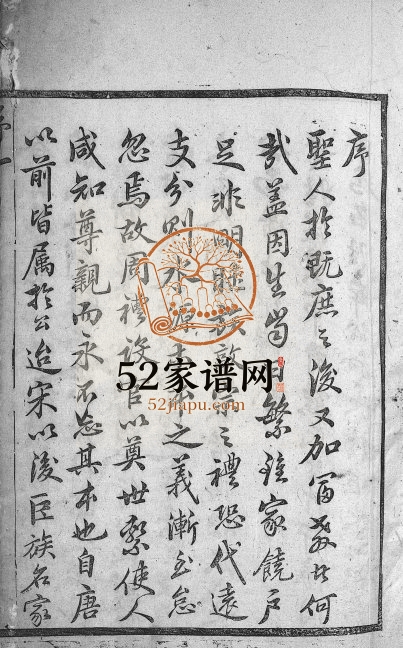 序
聖人於既庶之後又加富教者何
哉蓋因生齒日繁雖家饒戶
足非明 敦 之禮恐代遠
支分則水源木 之義漸至怠
忽焉故周禮設官以奠世繫使人
咸知尊親而永不忘其本也自唐
以前皆属於公迨宋以後臣族名家
52家谱网
52jiapu.com